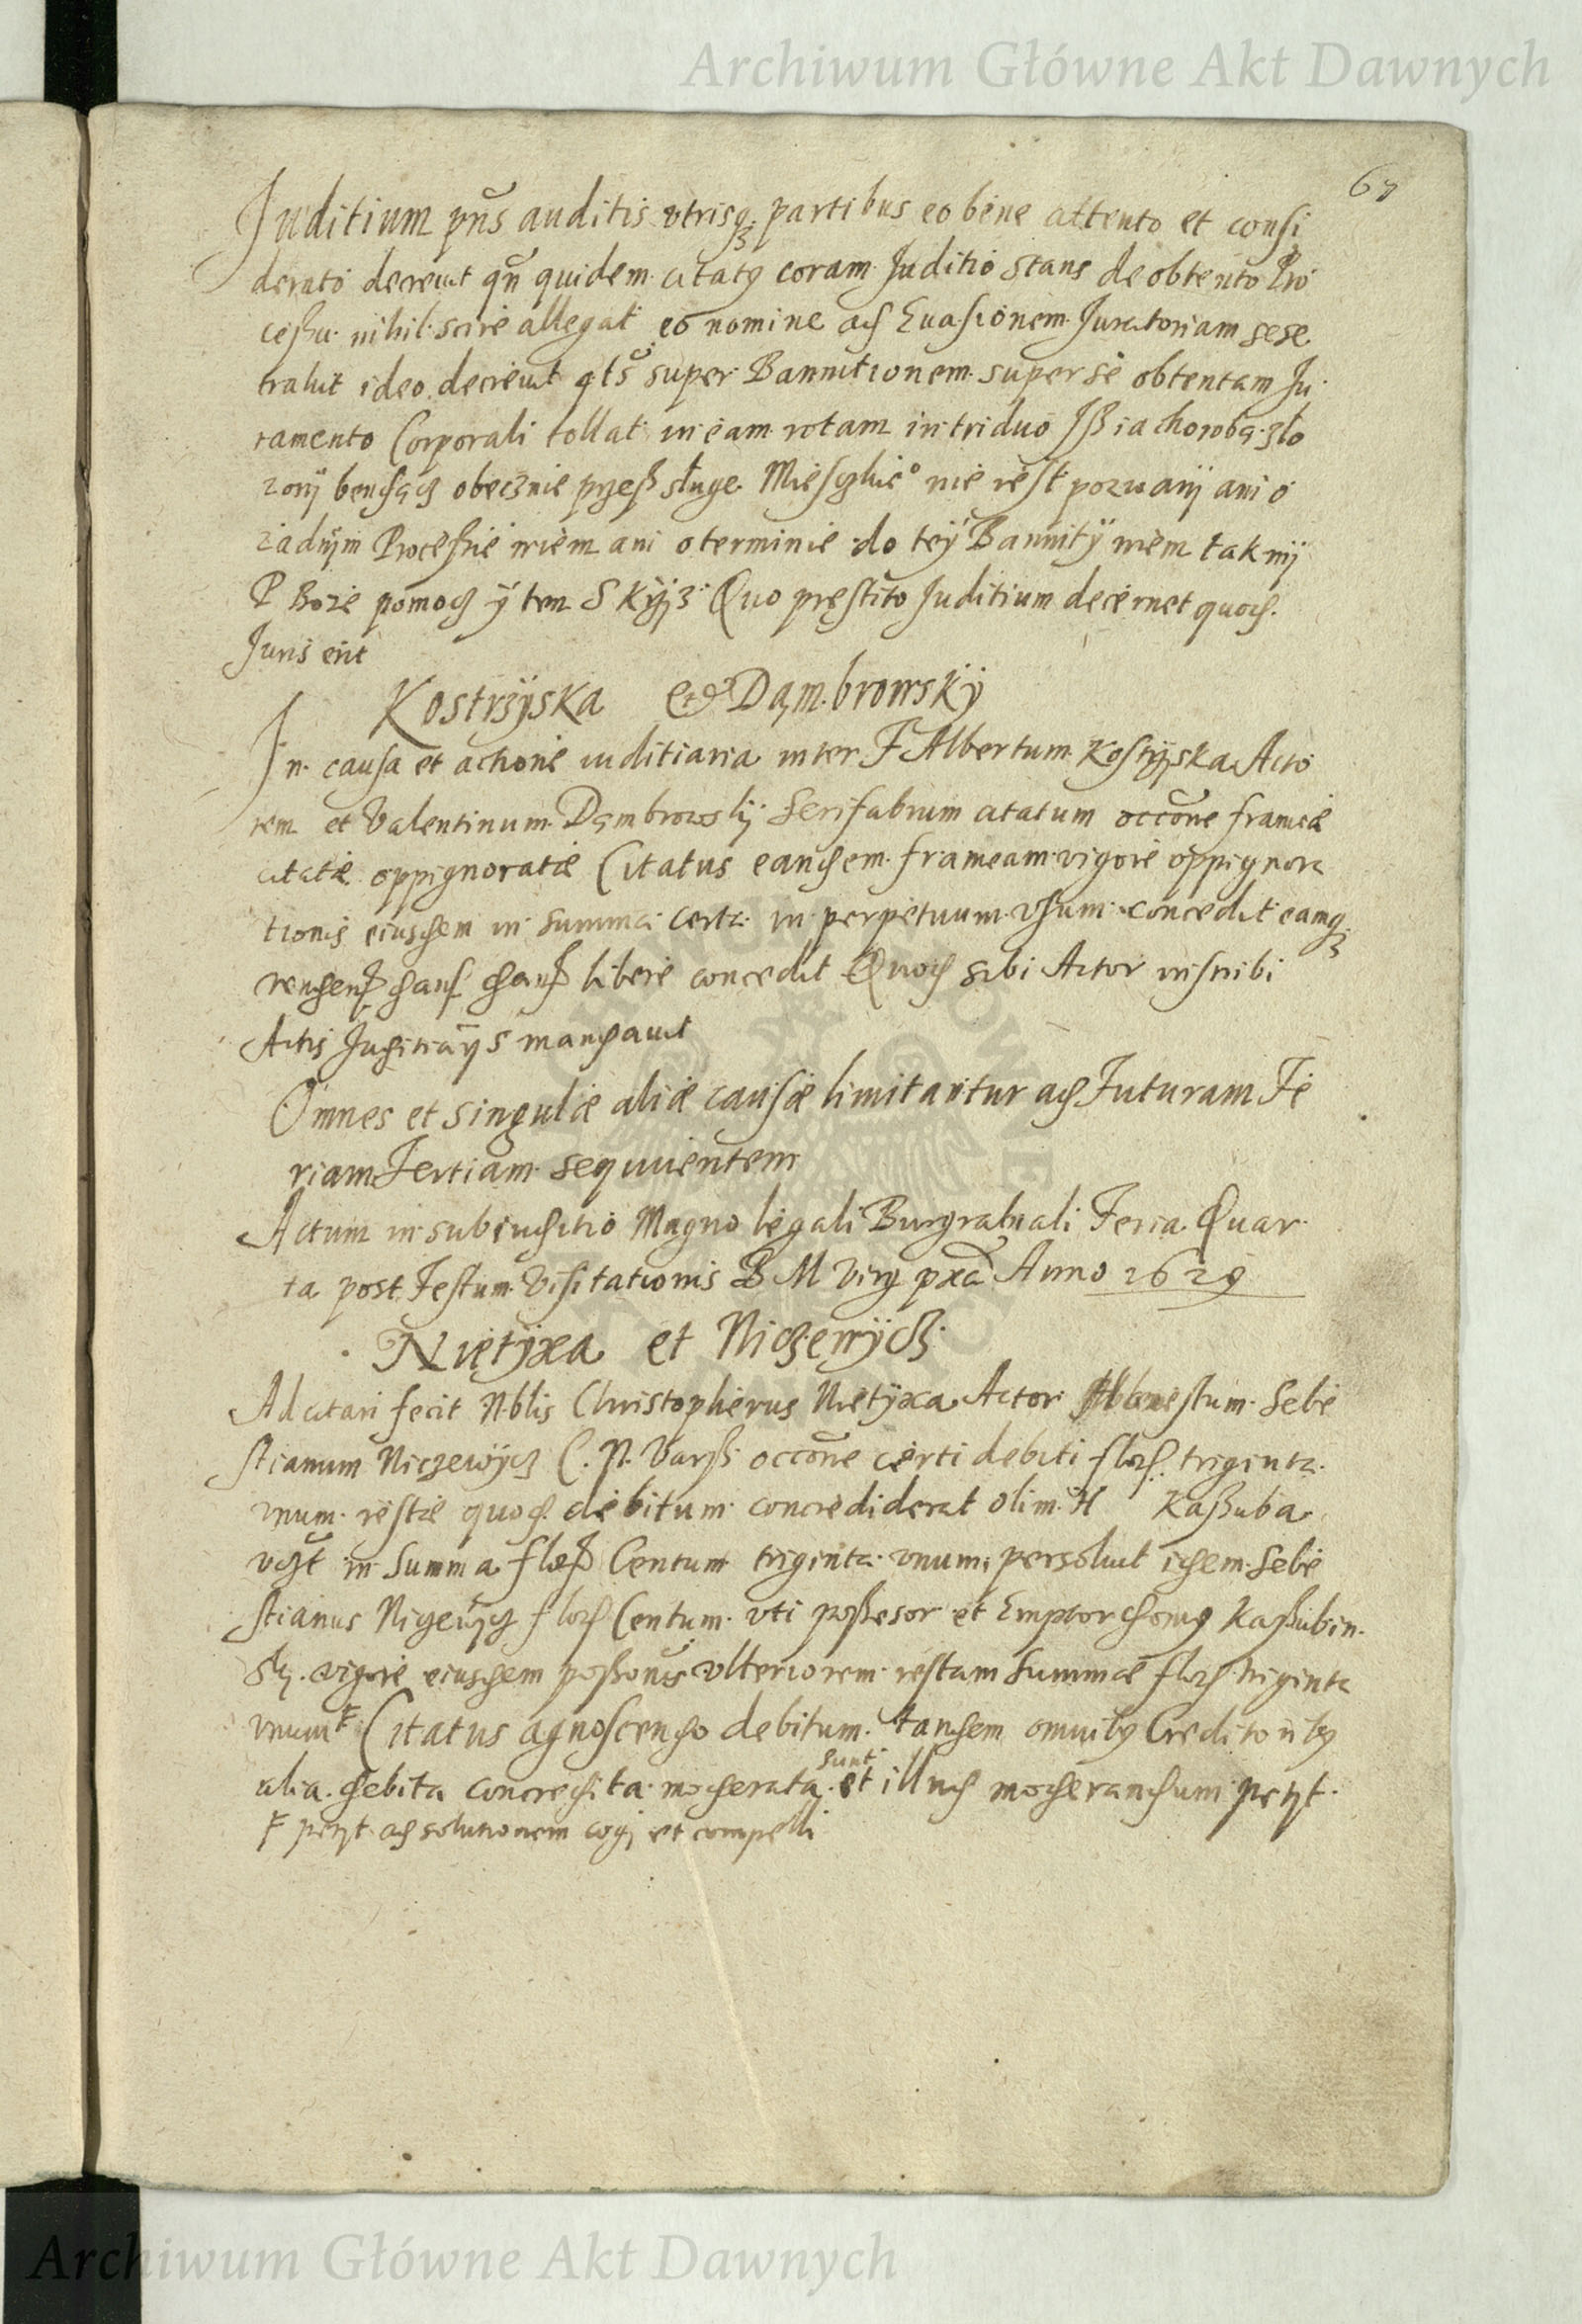 Archiwum Główne Akt Dawnych
67
Juditium pñs auditis vtrisq3 partibus eo bene attento et consi
derato decreuit qñ quidem citatq coram Juditio stans de obtento Pro
cessu nihil scire allegat eo nomine ad Euasionem Juratoriam sese
trahit ideo decreuit qts super Bannitionem super se obtentam Ju
ramento Corporali tollat in eam rotam in triduo Jß ia chorobą zło
zony bendącz obecznie przeß sługe Mieschic° nie iest pozwany ani o
zadnym Processie wiem ani o terminie do tey Bannity wiem tak my
P Boże pomocz y ten S Kyz Quo prestito Juditium decernet quod
Juris erit
Kostrzyska et Dąmbrowsky
In causa et actione iuditiaria inter F Albertum Kostyska Acto
rem et Valentinum Dąmbrowsky Serifabrum citatum occõne frameæ
citatæ oppignoratæ Citatus eandem frameam vigore oppignora
tionis eiusdem in summa certa in perpetuum vsum concedit eamq3
vendend dand libere concedit Quod sibi Actor inscribi
Actis Juditiarys mandauit
Omnes et singulæ aliæ causæ limitantur ad Futuram Fe
riam Tertiam sequuentem
Actum in subiuditio Magno legali Burgrabiali Feria Quar
ta post Festum Visitationis B M Virg pxã Anno 1629
Nietyxa et Niczewycz
Ad citari fecit Nblis Christopherus Nietyxa Actor honestum Sebe
stianum Niczewycz C. N. Varß occõne certi debiti flor. triginta
vnum restæ quod debitum concrediderat olim H Kaßuba
vczt in summa flor Centum triginta vnum persoluit idem Sebe
stianus Niczewycz flor Centum vti possesor et Emptor domq Kaßubin
sky vigore eiusdem possonis vlteriorem restam summæ flor triginta
vnum Ŧ Citatus agnoscendo debitum tandem omnibq Creditoribq
alia debita concredita moderata sunt et illud moderandum petyt
Ŧ petyt ad solutionem cogi et compelli
Archiwum Główne Akt Dawnych